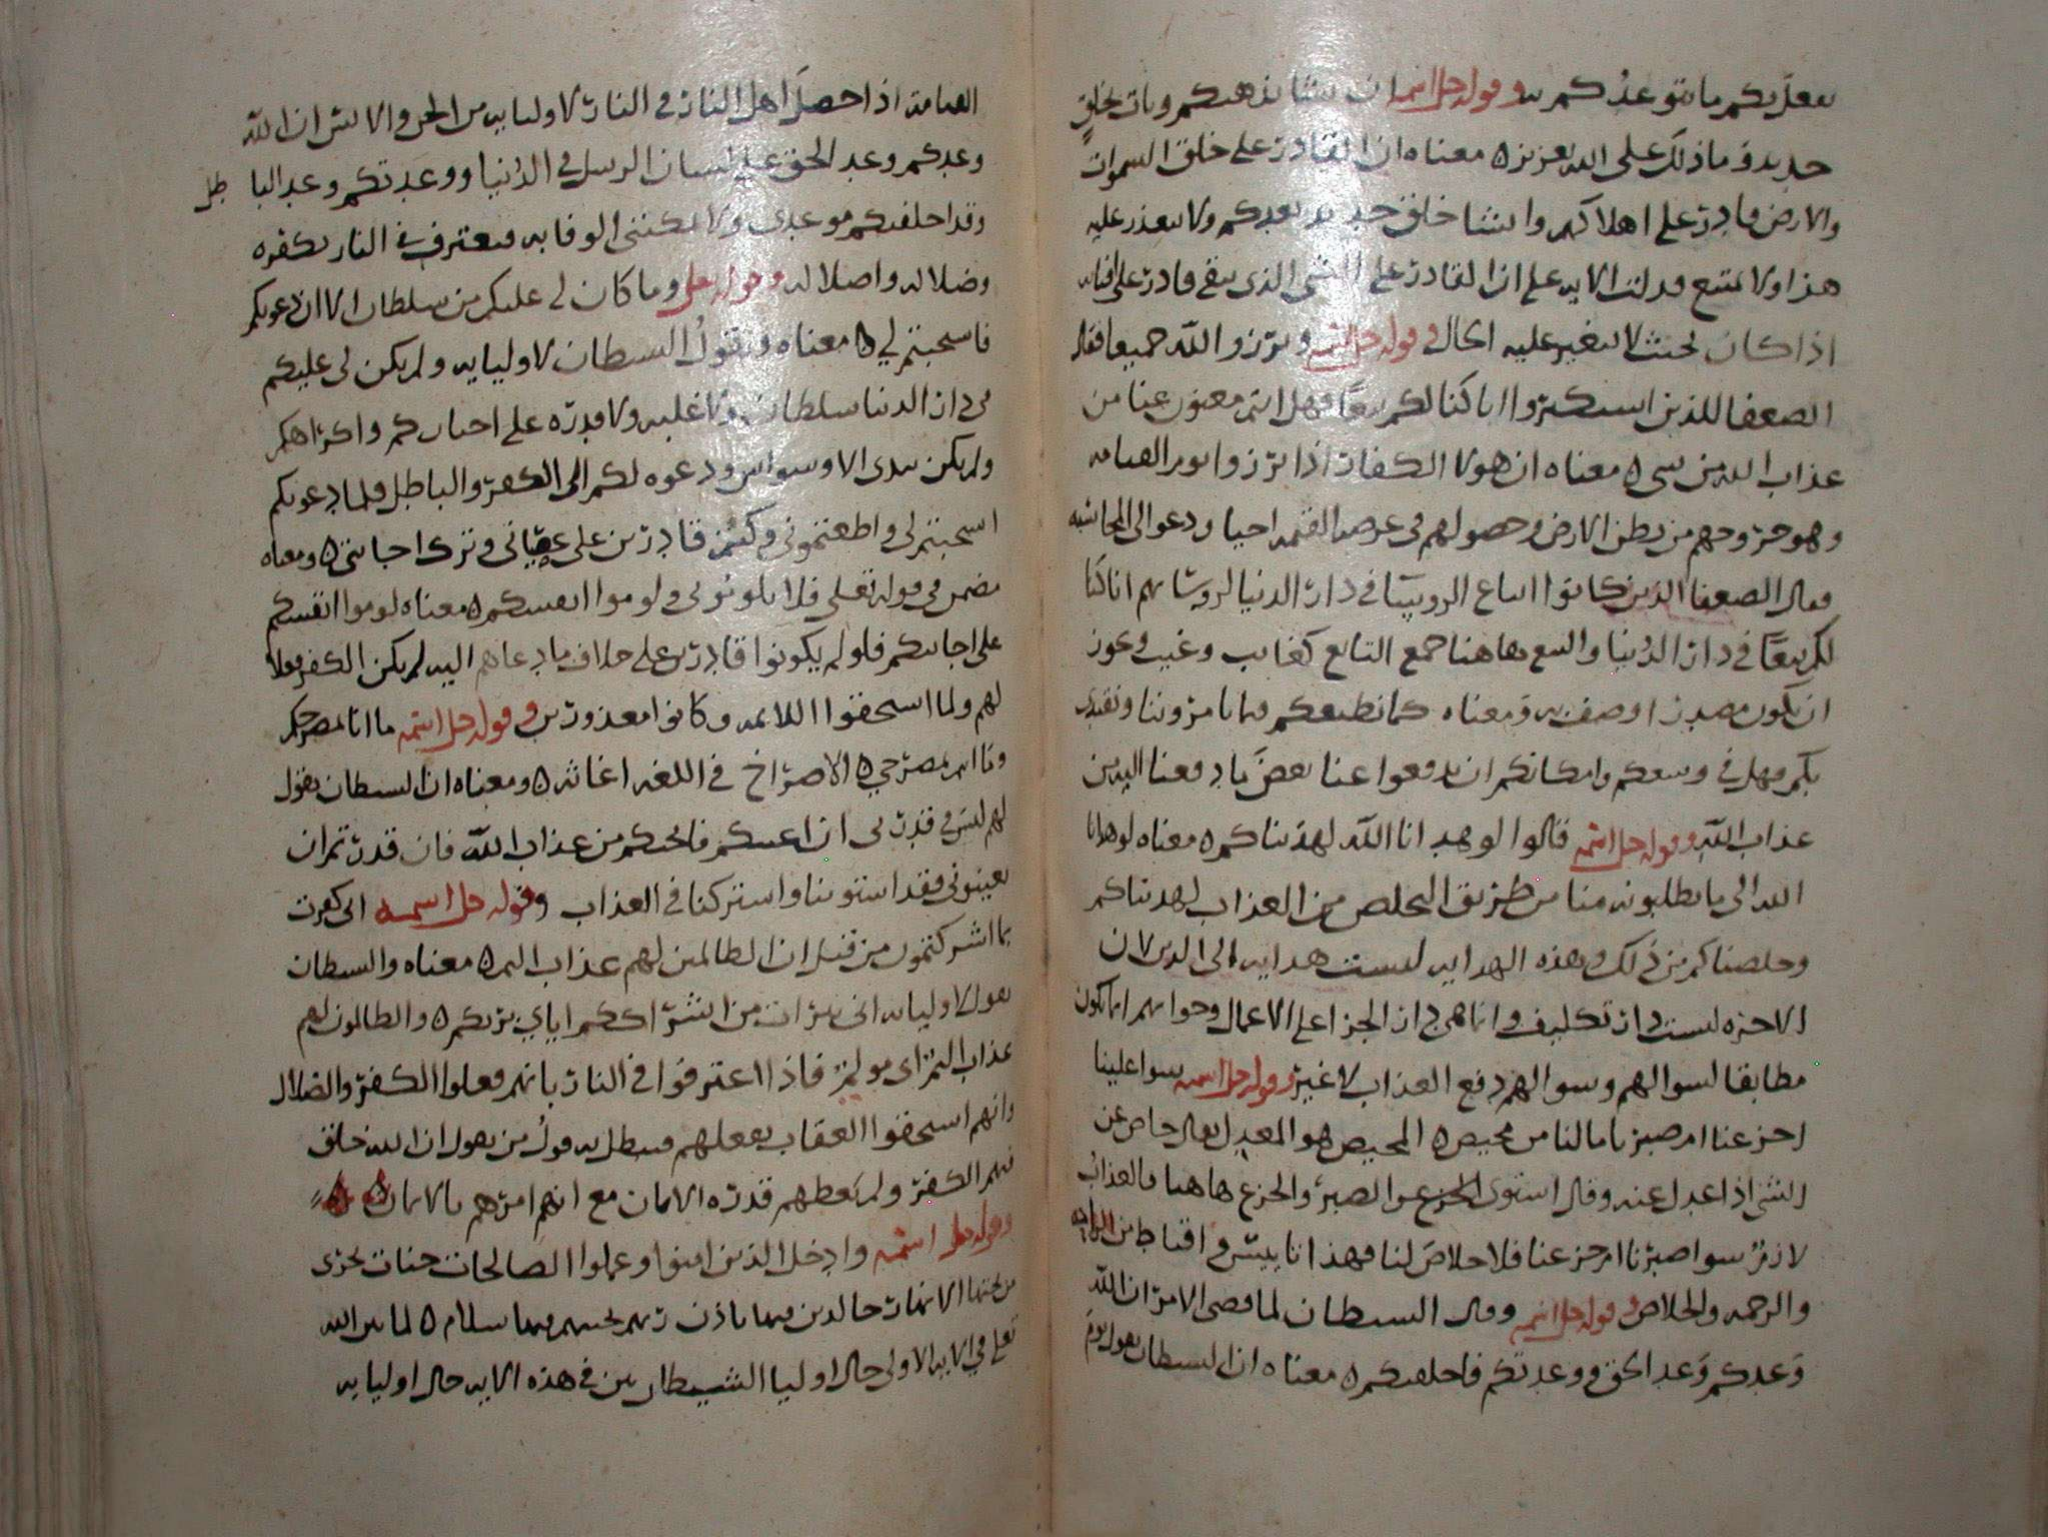 يفعل بكم ما يتوعدكم به وقوله جل اسمه ان يشا يذهبكم ويات بخلق
جديد وما ذلك على الله بعزيز ٥ معناه ان القادر على خلق السموات
والارض قادر على اهلاككم وانشا خلق جديد بعدكم ولا يتعذر عليه
هذا ولا يمتنع فدلت الايه على ان القادر على الشي الذي يبقى قادر على افنايه
اذا كان بحيث لا يتغير عليه الحال وقوله جل اسمه وبرزوا لله جميعا فقال
الضعفا للذين استكبروا انا كنا لكم تبعا فهل انتم مغنون عنا من
عذاب الله من شي ٥ معناه ان هولا الكفار اذا برزوا يوم القيامه
وهو خروجهم من بطن الارض وحصولهم في عرصه القيمه احيا ودعوا الى المحاسبه
فقال الضعفا الذين كانوا اتباع الروسا في دار الدنيا لروسايهم انا كنا
لكم تبعًا في دار الدنيا والتبع هاهنا جمع التابع كغايب وغيب ويجوز
ان يكون مصدر اوصف به ومعناه كنا نطيعكم فيما تامروننا ونقتدي
بكم فهل في وسعكم وامكانكم ان تدفعوا عنا بعض ما دفعنا اليه من
عذاب الله وقوله جل اسمه قالوا لو هدانا الله لهديناكم ٥ معناه لو هدانا
الله الى ما تطلبونه منا من طريق التخلص من العذاب لهديناكم
وخلصناكم من ذلك وهذه الهدايه ليست هدايه الى الدين لان
الاخره ليست دار تكليف وانما هي دار الجزا على الاعمال وجوابهم انما يكون
مطابقا لسوالهم وسوالهم دفع العذاب لا غير وقوله جل اسمه سوا علينا
اجزعنا ام صبرنا ما لنا من محيص ٥ المحيص هو المعدل يقال حاص عن
الشي اذا عدل عنه وقال استوى الجزع والصبر والجزع هاهنا فالعذاب
لازم سوا صبرنا ام جزعنا فلا خلاص لنا فهذا اياس واقناط من
والرحمه والخلاص وقوله جل اسمه وقال الشيطان لما قضى الامر ان الله
وعدكم وعد الحق ووعدتكم فاخلفتكم ٥ معناه ان الشيطان يقول يوم
القيامه اذا حصل اهل النار في النار لاوليايه من الجن والانس ان الله
وعدكم وعد الحق على لسان الرسل في الدنيا ووعدتكم وعد الباطل
وقد اخلفتكم موعدي ولا يمكنني الوفا به فيعترف في النار بكفره
وضلاله واضلاله وقوله تعلى وما كان لي عليكم من سلطان الا ان دعوتكم
فاستجبتم لي ٥ معناه ويقول الشيطان لاوليايه ولم يكن لي عليكم
في دار الدنيا سلطان ولا غلبه ولا قدره على اجباركم واكراهكم
ولم يكن بيدي الا وسواس ودعوه لكم الى الكفر والباطل فلما دعوتكم
استجبتم لي واطعتموني وكنتم قادرين على عصياني وترك اجابتي ٥ ومعناه
مضمن في قوله تعلى فلا تلوموني ولوموا انفسكم ٥ معناه لوموا انفسكم
على اجابتكم فلو لم يكونوا قادرين على خلاف ما دعاهم اليه لم يكن الكفر فعلا
لهم ولما استحقوا اللايمه وكانوا معذورين وقوله جل اسمه ما انا بمصرخكم
وما انتم بمصرخي ٥ الاصراخ في اللغه اغاثه ٥ ومعناه ان الشيطان يقول
لهم ليس في قدرتي ان اعينكم فانجيكم من عذاب الله فان قدرتم ان
تعينوني فقد استوينا واشتركنا في العذاب وقوله جل اسمه اني كفرت
بما اشركتمون من قبل ان الظالمين لهم عذاب اليم ٥ معناه والشيطان
يقول لاوليايه اني تبرات من اشراككم اياي بربكم ٥ والظالمون لهم
عذاب اليم اي مولم فاذا اعترفوا في النار بانهم فعلوا الكفر والضلال
وانهم استحقوا العقاب بفعلهم فيبطل به قول من يقول ان الله خلق
فيهم الكفر ولم يعطهم قدره الايمان مع انهم امرهم بالايمان
وقوله جل اسمه وادخل الذين امنوا وعملوا الصالحات جنات تجري
من تحتها الانهار خالدين فيها باذن ربهم تحيتهم فيها سلام ٥ لما بين الله
تعلى في الايه الاولى حال اوليا الشيطان بين في هذه الايه حال اوليايه